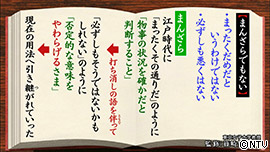 【まんざらでもない】
・まったくだめだと
いうわけではない
・必ずしも悪くはない
まんざら
江戸時代に
「まったくその通りだ」のように
「物事の状況を確かだと
判断すること」
打ち消しの語を伴って
「必ずしもそうではないかも
しれない」のように
「否定的な意味を
やわらげるさま」
現在の用法へ引き継がれていった
©NTV